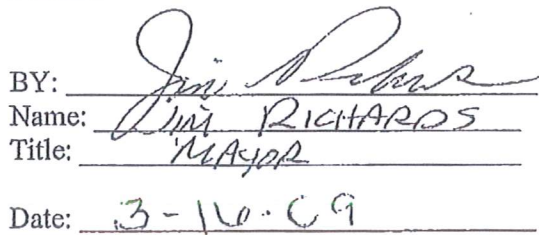 BY: Jim Richards
Name: JIM RICHARDS
Title: MAYOR
Date: 3-16-09